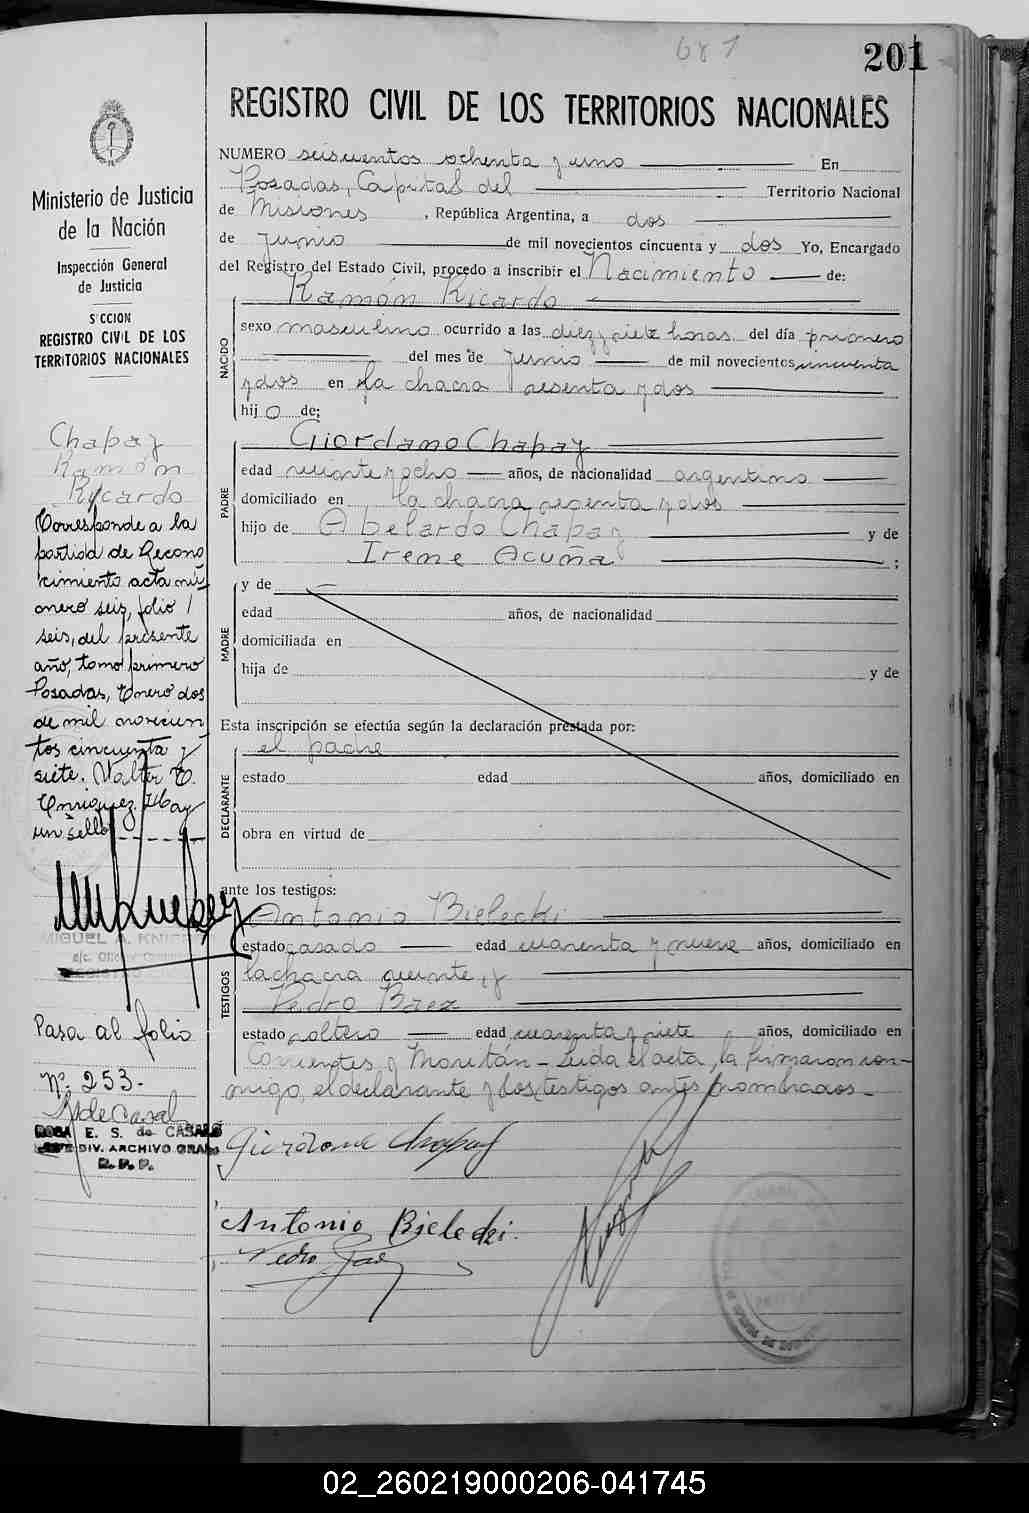 681
201
REGISTRO CIVIL DE LOS TERRITORIOS NACIONALES
Ministerio de Justicia
de la Nación
Inspección General
de Justicia
SECCION
REGISTRO CIVIL DE LOS
TERRITORIOS NACIONALES
Chapay
Ramón
Ricardo
Corresponde a la
partida de Recono
cimiento acta nú
mero seis, folio
seis, del presente
año, tomo primero
Posadas, Enero dos
de mil novecien
tos cincuenta y
siete. Walter E.
Enriquez. Hay
un sello
MIGUEL A.
Pasa al folio
Nº. 253.-
R de Casal
ROSA E. S. de CASALS
DIV. ARCHIVO GRAL
R. P. P.
NUMERO seiscientos ochenta y uno En
Posadas, Capital del Territorio Nacional
de Misiones, República Argentina, a dos
de Junio de mil novecientos cincuenta y dos Yo, Encargado
del Registro del Estado Civil, procedo a inscribir el Nacimiento de:
Ramón Ricardo
NACIDO
sexo masculino ocurrido a las diez y siete horas del día primero
del mes de Junio de mil novecientos cincuenta
y dos en la chacra sesenta y dos
hijo de:
PADRE
Giordano Chapay
edad veinte y ocho años, de nacionalidad argentino
domiciliado en la chacra sesenta y dos
hijo de Abelardo Chapay y de
Irene Acuña ;
MADRE
y de
edad años, de nacionalidad
domiciliada en
hija de y de
Esta inscripción se efectúa según la declaración prestada por:
el padre
DECLARANTE
estado edad años, domiciliado en
obra en virtud de
ante los testigos:
TESTIGOS
Antonio Bielecki
estado casado edad cuarenta y nueve años, domiciliado en
la chacra veinte, y
Pedro Baez
estado soltero edad cuarenta y siete años, domiciliado en
Corrientes y Moritán - Leida el acta, la firmaron con-
migo, el declarante y los testigos antes nombrados -
Giordano Chapay
Antonio Bielecki.
Pedro Baez
02_260219000206-041745